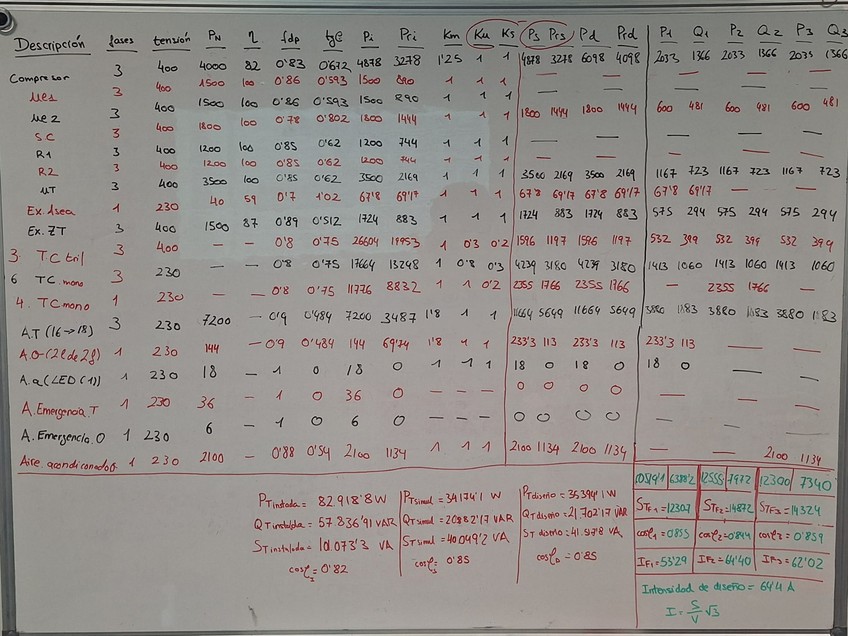 Descripción fases tensión PN η fdp tgφ Pi Pri Km Ku Ks Ps Prs Pd Prd P1 Q1 P2 Q2 P3 Q3
Compresor 3 400 4000 82 0'83 0'672 4878 3278 1'25 1 1 4878 3278 6098 4098 2033 1366 2033 1366 2033 1366
Me1 3 400 1500 100 0'86 0'593 1500 890 1 1 1 — — — —
Me2 3 400 1500 100 0'86 0'593 1500 890 1 1 1
SC 3 400 1800 100 0'78 0'802 1800 1444 1 1 1 1800 1444 1800 1444 600 481 600 481 600 481
R1 3 400 1200 100 0'85 0'62 1200 744 1 1 1 — — — — —
R2 3 400 1200 100 0'85 0'62 1200 744 1 1 1 — — — — —
MT 3 400 3500 100 0'85 0'62 3500 2169 1 1 1 3500 2169 3500 2169 1167 723 1167 723 1167 723
Ex. 1sea 1 230 40 59 0'7 1'02 67'8 69'17 1 1 1 67'8 69'17 67'8 69'17 67'8 69'17 — —
Ex. ZT 3 400 1500 87 0'89 0'512 1724 883 1 1 1 1724 883 1724 883 575 294 575 294 575 294
3 TC tri 3 400 — — 0'8 0'75 26604 19953 1 0'3 0'2 1596 1197 1596 1197 532 399 532 399 532 399
6 TC. mono 3 230 — — 0'8 0'75 17664 13248 1 0'8 0'3 4239 3180 4239 3180 1413 1060 1413 1060 1413 1060
4. TC mono 1 230 — — 0'8 0'75 11776 8832 1 1 0'2 2355 1766 2355 1766 — 2355 1766 —
A.T (16→18) 3 230 7200 — 0'9 0'484 7200 3487 1'8 1 1 11664 5649 11664 5649 3880 1883 3880 1883 3880 1883
A.O (2l de 28) 1 230 144 — 0'9 0'484 144 69'74 1'8 1 1 233'3 113 233'3 113 233'3 113 — —
A.a (LED (1)) 1 230 18 — 1 0 18 0 1 1 1 18 0 18 0 18 0 — —
A. Emergencia. T 1 230 36 — 1 0 36 0 — — — 0 0 0 0 — — —
A. Emergencia. O 1 230 6 — 1 0 6 0 — — — 0 0 0 0 — — —
Aire acondicionado 1 230 2100 — 0'88 0'54 2100 1134 1 1 1 2100 1134 2100 1134 — — 2100 1134
6388'2 12555 7972 12300 7340
PT instalada = 82918'8 W PT simul = 34174'1 W PT diseño = 35394'1 W
QT instalada = 57836'91 VAR QT simul = 20882'17 VAR QT diseño = 21.702'17 VAR
ST instalada = 101073'3 VA ST simul = 40049'2 VA ST diseño = 41.517'8 VA
cosφ = 0'82 cosφs = 0'85 cosφD = 0'85
STF1 = 12307 STF2 = 14872 STF3 = 14324
cosφ1 = 0'855 cosφ2 = 0'844 cosφ3 = 0'859
IF1 = 53'29 IF2 = 64'40 IF3 = 62'02
Intensidad de diseño = 64'4 A
I = S/V √3